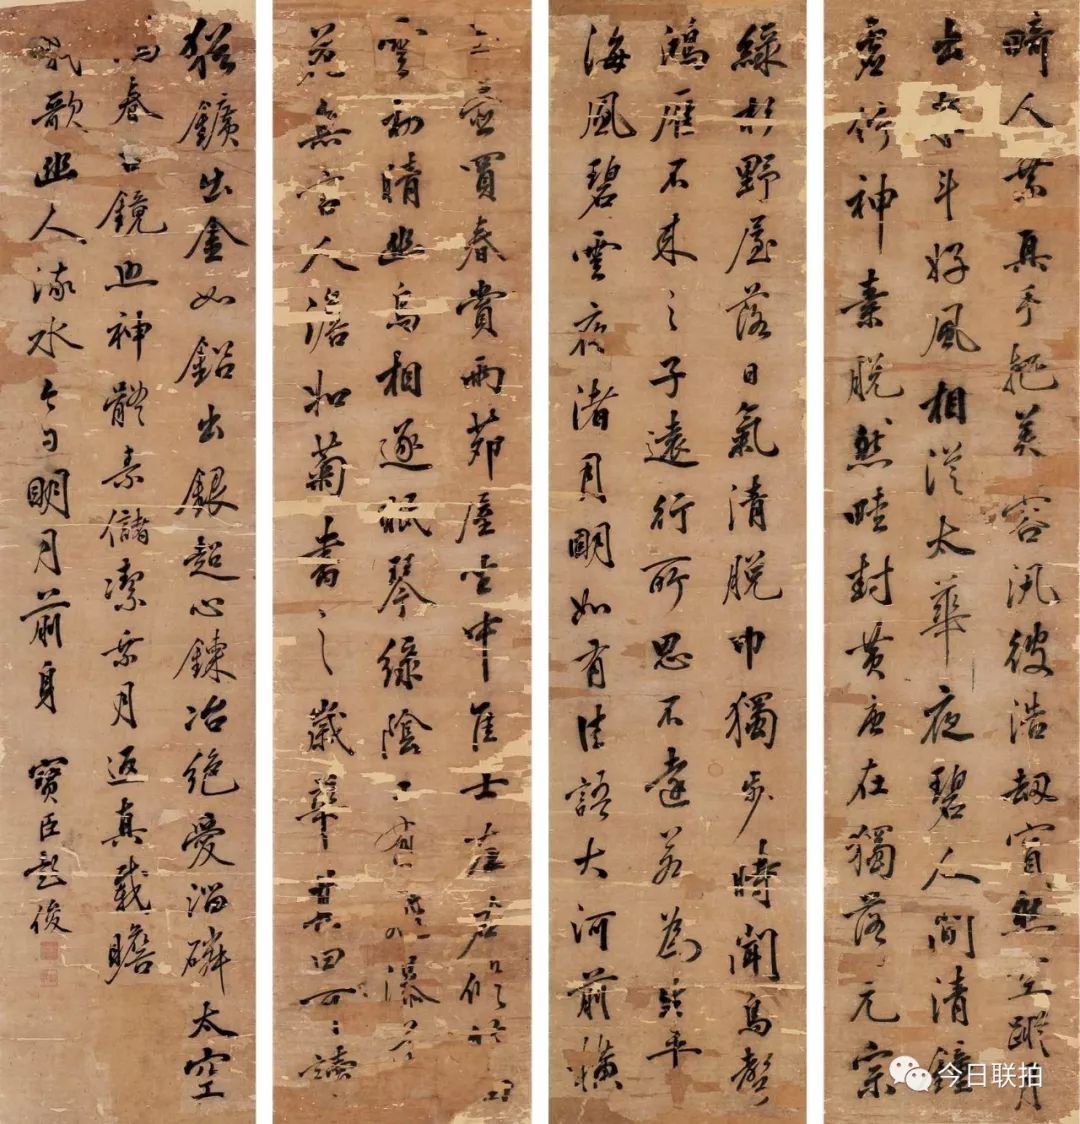 畸人乘真手把芙容汎彼浩劫窅然空蹤月
出東斗好風相從太華夜碧人聞清鐘
虛佇神素脫然畦封黃唐在獨落元宗
綠杉野屋落日氣清脫巾獨步時聞鳥聲
鴻雁不來之子遠行所思不遠若為平生
海風碧雲夜渚月明如有佳語大河前橫
玉壺買春賞雨茆屋坐中佳士左右修竹白
雲初晴幽鳥相逐眠琴綠陰上有飛瀑落
花無言人澹如菊書之歲華其曰可讀
猶鑛出金如鉛出銀超心鍊冶絕愛淄磷太空
春古鏡照神體素儲潔乘月返真載瞻
載歌幽人流水今日明月前身 寶臣 俊
今日联拍